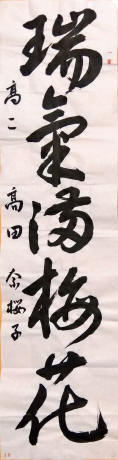 瑞氣満梅花
高二 高田 奈桜子